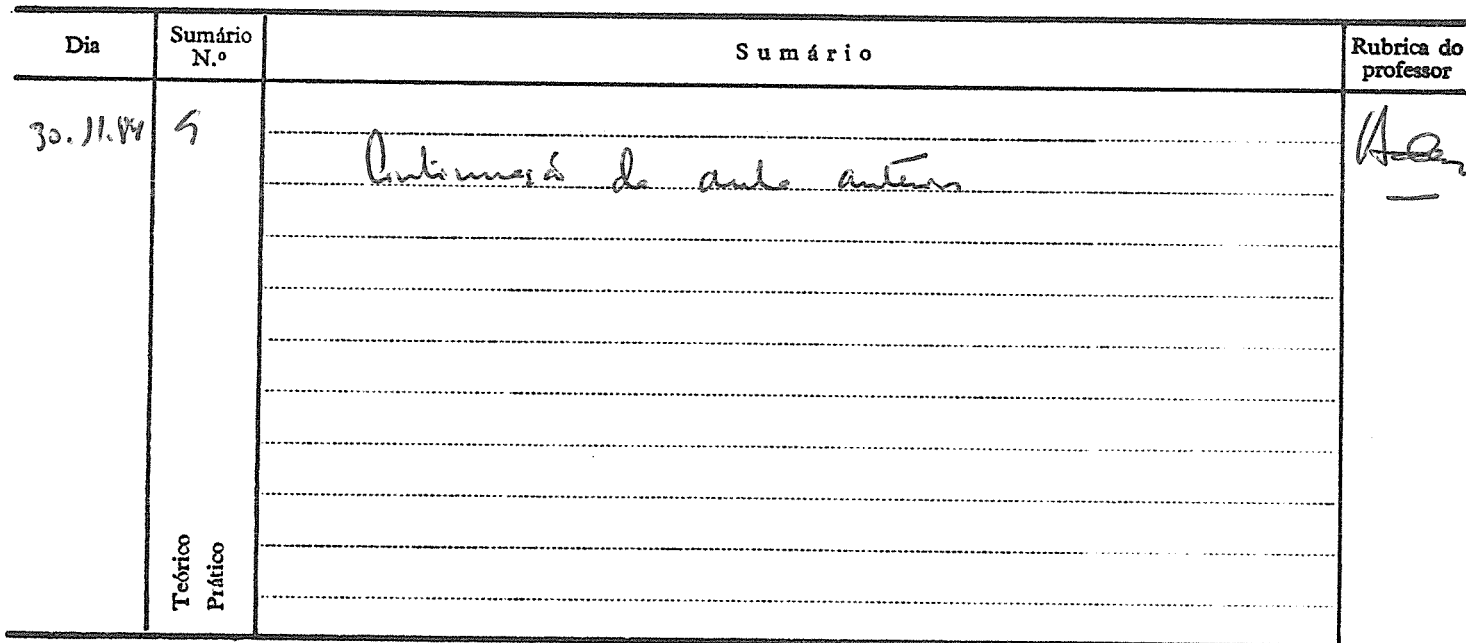 Dia
Sumário N.º
Sumário
Rubrica do professor
30.11.84
5
Continuação da aula anterior
Teórico
Prático